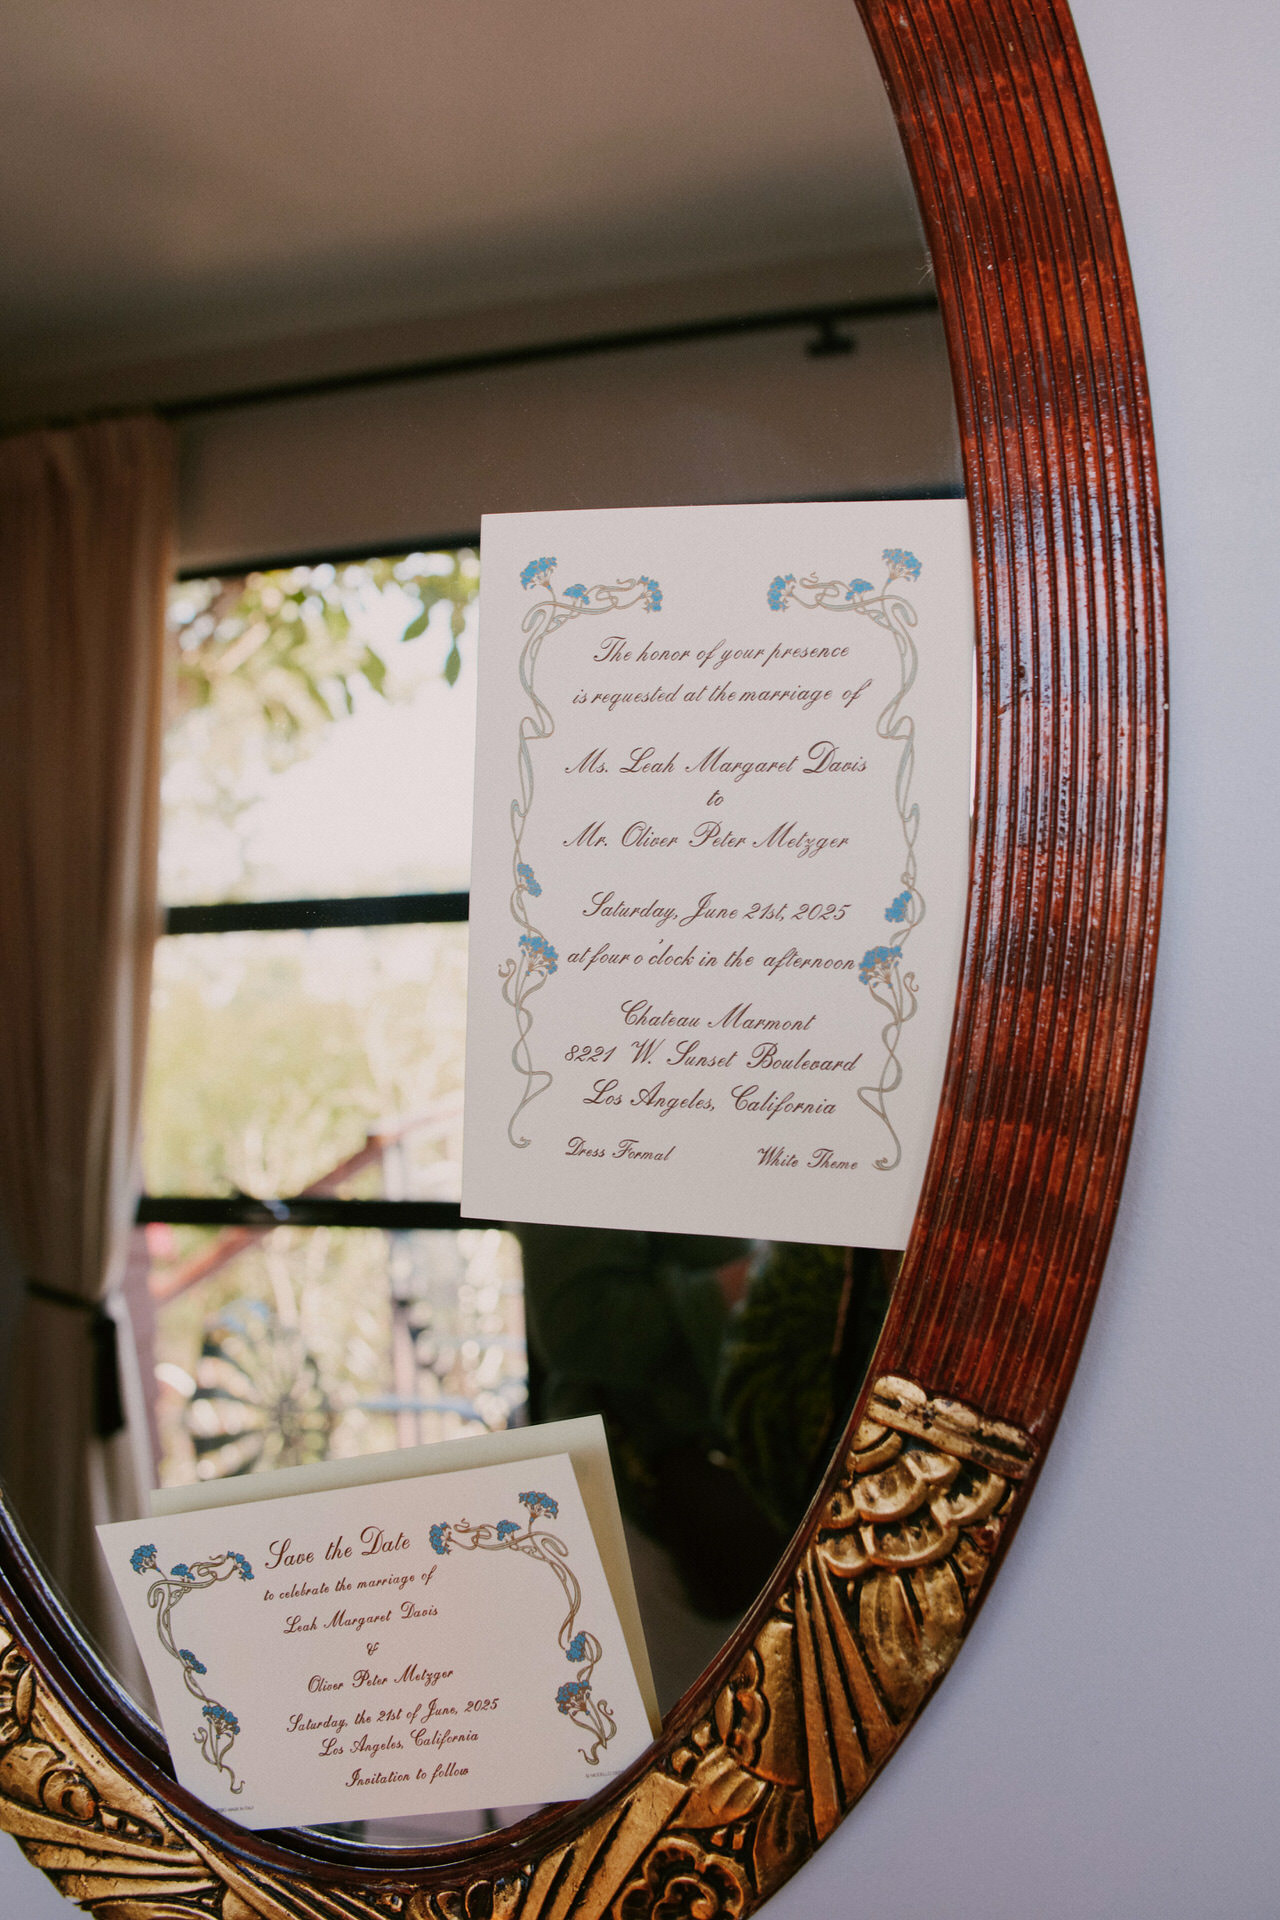 The honor of your presence
is requested at the marriage of
Ms. Leah Margaret Davis
to
Mr. Oliver Peter Metzger
Saturday, June 21st, 2025
at four o'clock in the afternoon
Chateau Marmont
8221 W. Sunset Boulevard
Los Angeles, California
Dress Formal White Theme
Save the Date
to celebrate the marriage of
Leah Margaret Davis
&
Oliver Peter Metzger
Saturday, the 21st of June, 2025
Los Angeles, California
Invitation to follow